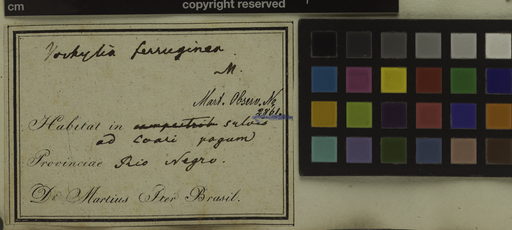 cm
copyright reserved
Vochysia ferruginea.
M.
Mart. Observ. No
2761.
Habitat in campestrib silvis
ad Coari pagum
Provinciae Rio Negro.
Dr. Martius Iter Brasil.